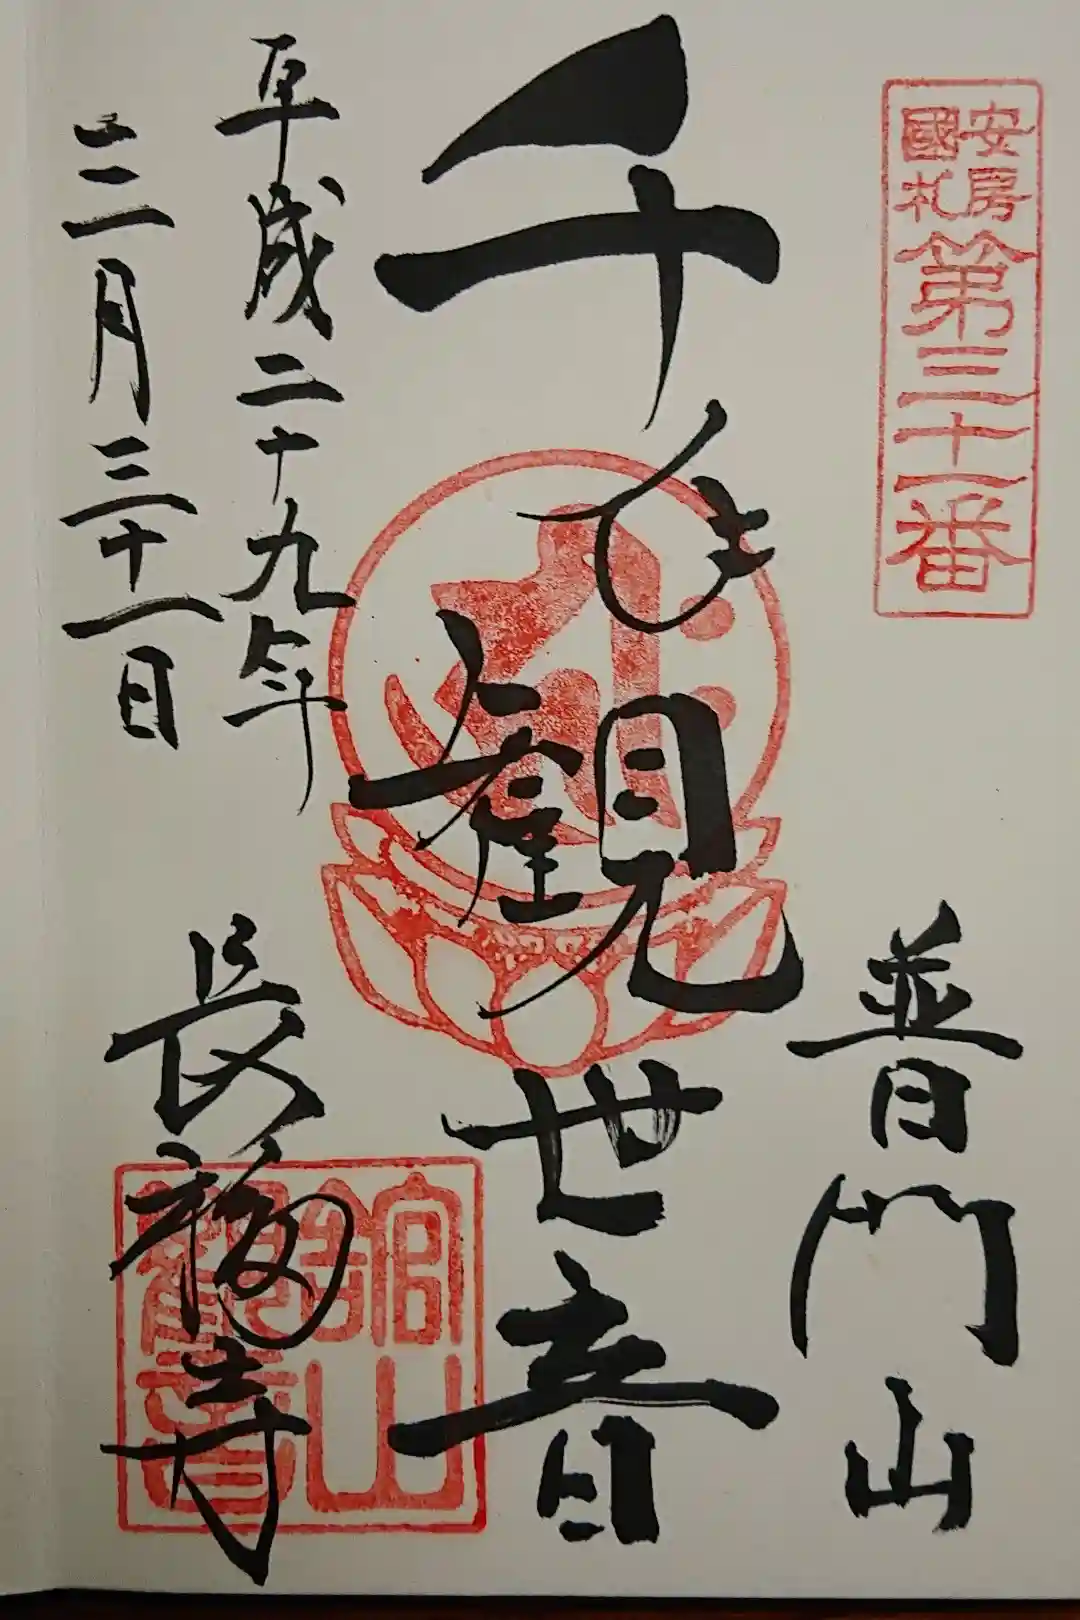 安房
國札
第三十一番
普門山
千手観世音
平成二十九年
三月三十一日
長福寺
館山
観音